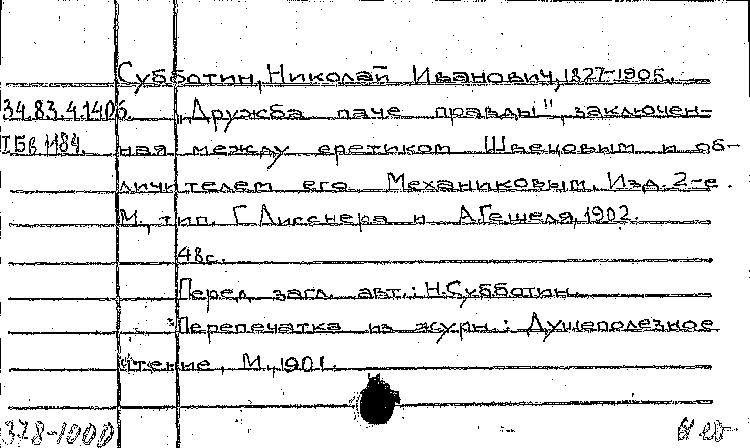 Субботин, Николай Иванович, 1827-1905.
34.83.4.1406. „Дружба паче правды", заключен-
IБв 1184. ная между еретиком Швецовым и об-
личителем его Механиковым. Изд. 2-е.
М., тип. Г. Лисснера и А. Гешеля, 1902.
48с.
Перед загл. авт.: Н. Субботин.
Перепечатка из журн.: Душеполезное
чтение, М., 1901.
378-1000